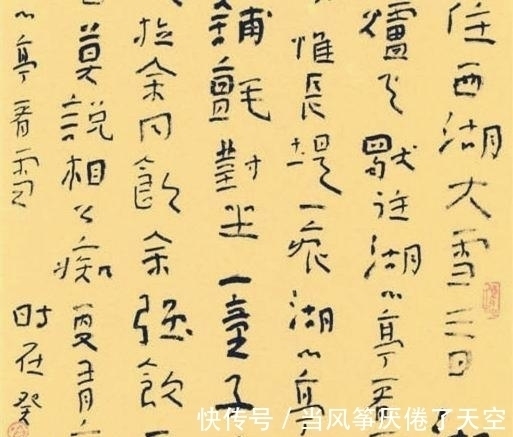 住西湖大雪三日
爐火獨往湖心亭看
惟長堤一痕湖心亭
鋪氈對坐一童子
拉余同飲余强飲
曰莫說相公痴更有
心亭看雪
時在癸
快传号 / 当风筝厌倦了天空